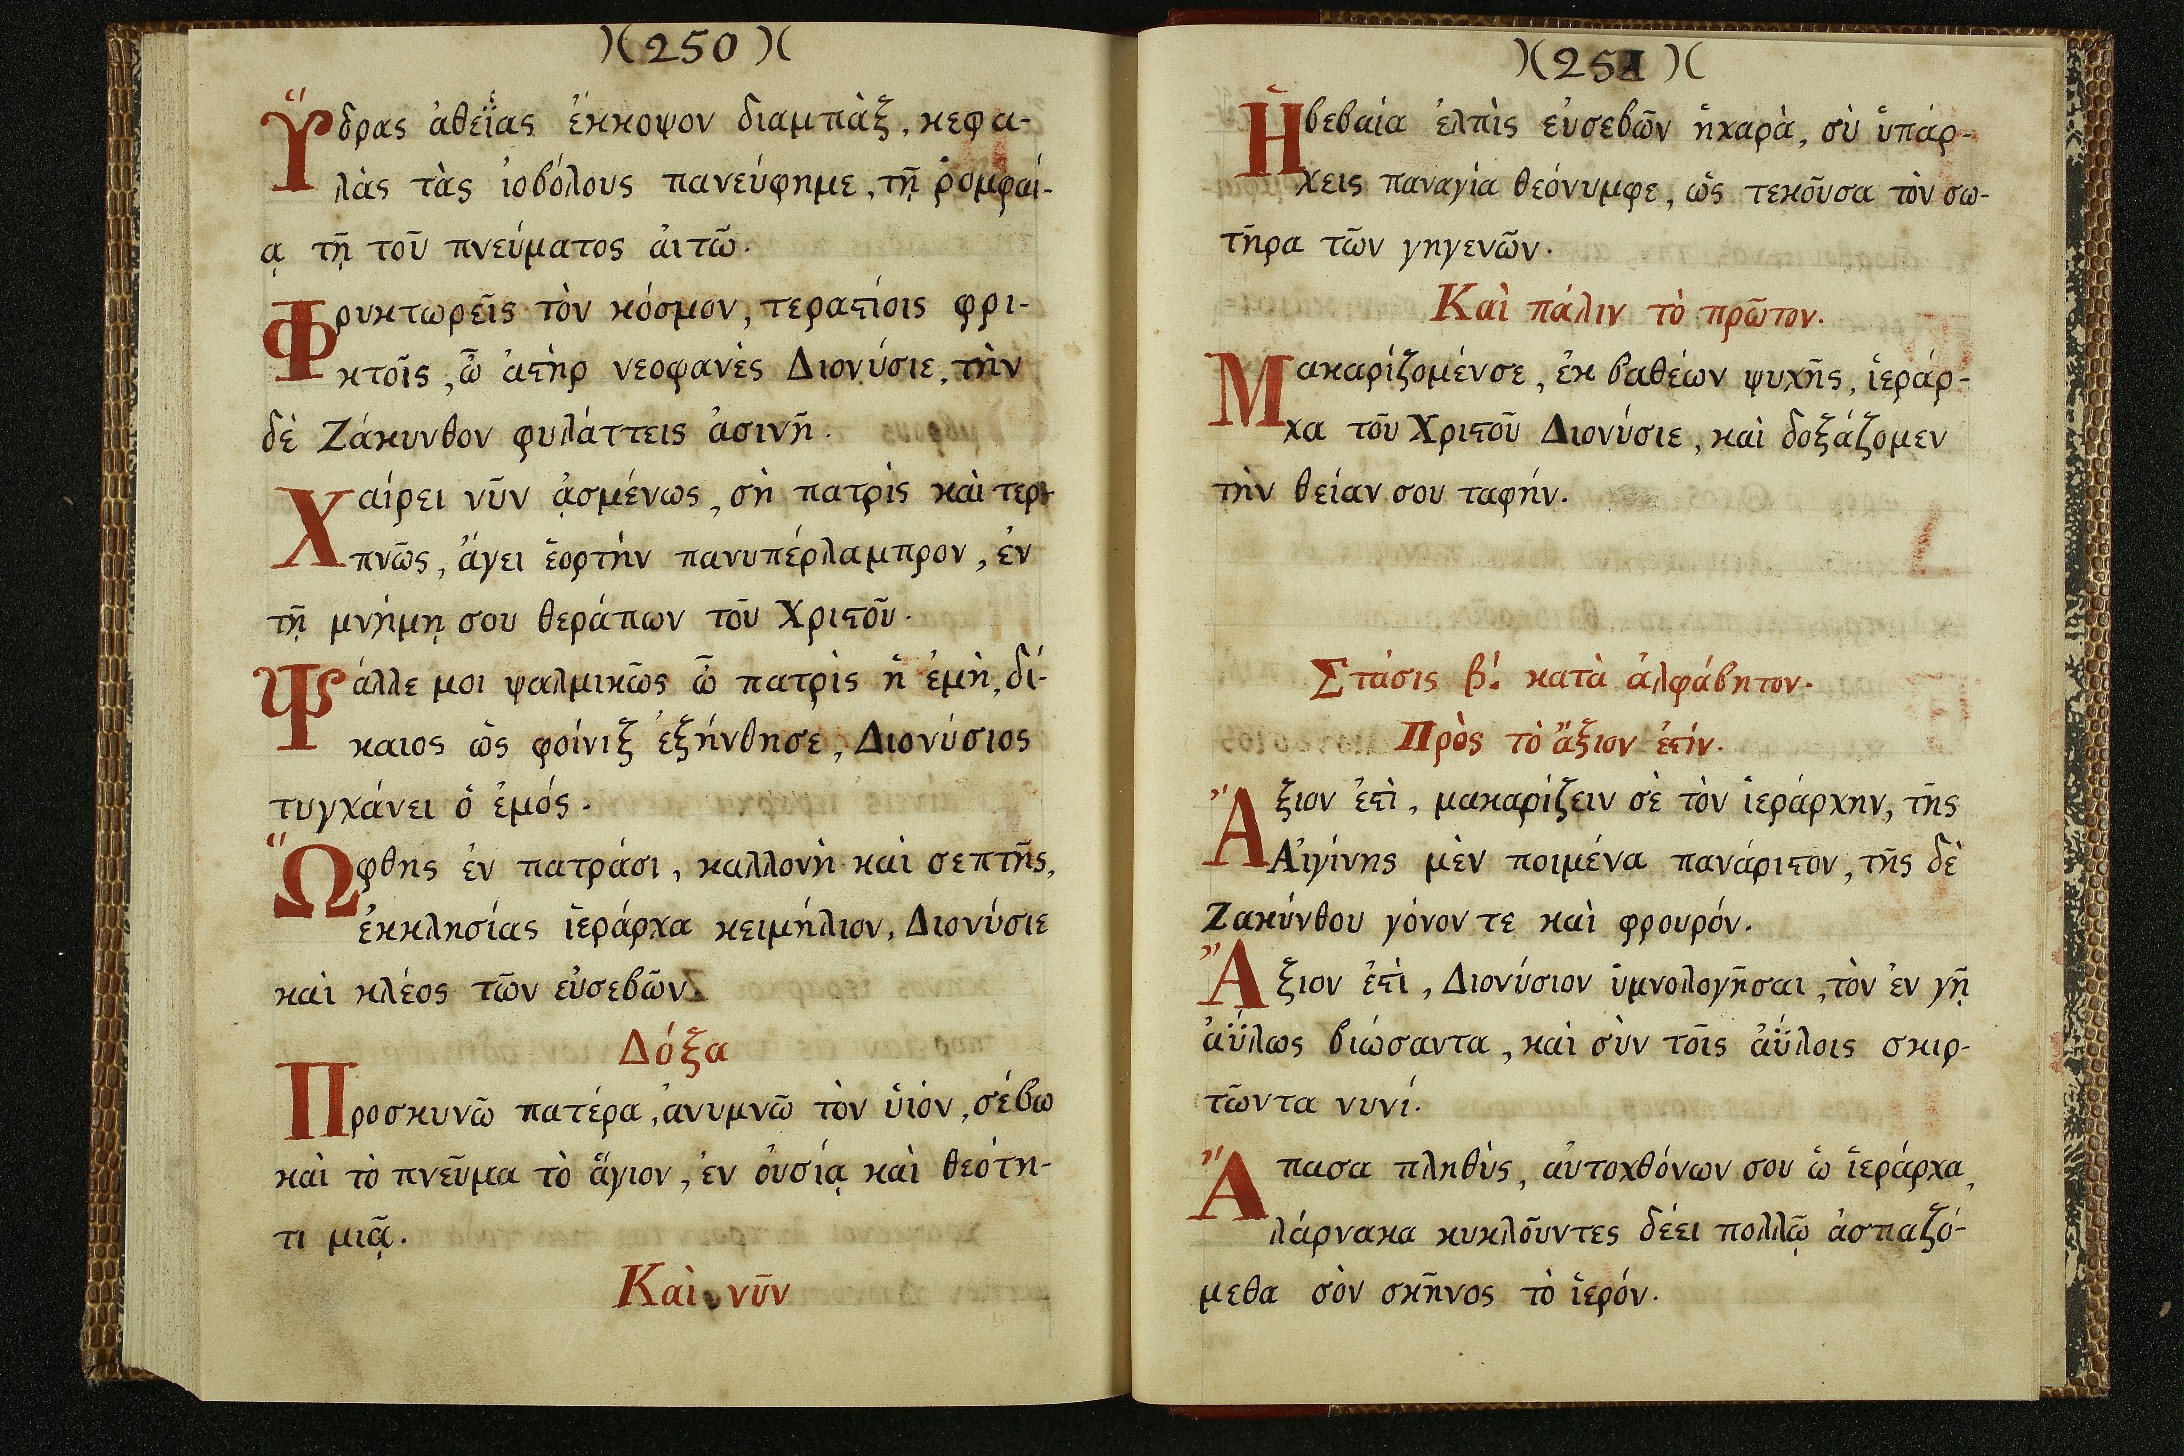 )(250)(
Ὕδρας ἀθεΐας ἔκκοψον διαμπὰξ, κεφα-
λὰς τὰς ἰοβόλους πανεύφημε, τῇ ῥομφαί-
ᾳ τῇ τοῦ πνεύματος ἀιτῶ.
Φρυκτωρεῖς τὸν κόσμον, τεραϛίοις φρι-
κτοῖς, ὦ ἀϛὴρ νεοφανὲς Διονύσιε, τὴν
δὲ Ζάκυνθον φυλάττεις ἀσινῆ.
Χαίρει νῦν ᾀσμένως, σὴ πατρὶς καὶ τερ-
πνῶς, ἄγει ἑορτήν πανυπέρλαμπρον, ἐν
τῇ μνήμῃ σου θεράπων τοῦ Χριϛοῦ.
Ψάλλε μοι ψαλμικῶς ὦ πατρὶς ἡ ἐμὴ, δί-
καιος ὡς φοίνιξ ἐξήνθησε, Διονύσιος
τυγχάνει ὁ ἐμός.
Ὤφθης ἐν πατράσι, καλλονὴ καὶ σεπτῆς,
ἐκκλησίας ἱεράρχα κειμήλιον, Διονύσιε
καὶ κλέος τῶν εὐσεβῶν.
Δόξα
Προσκυνῶ πατέρα, ἀνυμνῶ τὸν ὑιόν, σέβω
καὶ τὸ πνεῦμα τὸ ἅγιον, ἐν ὀυσίᾳ καὶ θεότη-
τι μιᾷ.
Καὶ νῦν
)(251)(
Ἡ βεβαία ἐλπὶς εὐσεβῶν ἡ χαρὰ, σὺ ὑπάρ-
χεις παναγία θεόνυμφε, ὡς τεκοῦσα τὸν σω-
τῆρα τῶν γηγενῶν.
Καὶ πάλιν τὸ πρῶτον.
Μακαρίζομέν σε, ἐκ βαθέων ψυχῆς, ἱεράρ-
χα τοῦ Χριϛοῦ Διονύσιε, καὶ δοξάζομεν
τὴν θείαν σου ταφήν.
Στάσις β΄. κατὰ ἀλφάβητον.
Πρὸς τὸ ἄξιον ἐϛίν.
Ἄξιον ἐϛὶ, μακαρίζειν σὲ τὸν ἱεράρχην, τῆς
Αἰγίνης μὲν ποιμένα πανάριϛον, τῆς δὲ
Ζακύνθου γόνον τε καὶ φρουρόν.
Ἄξιον ἐϛὶ, Διονύσιον ὑμνολογῆσαι, τὸν ἐν γῇ
ἀΰλως βιώσαντα, καὶ σὺν τοῖς ἀΰλοις σκιρ-
τῶντα νυνί.
Ἅπασα πληθὺς, αὐτοχθόνων σου ὦ ἱεράρχα,
λάρνακα κυκλοῦντες δέει πολλῷ ἀσπαζό-
μεθα σὸν σκῆνος τὸ ἱερόν.